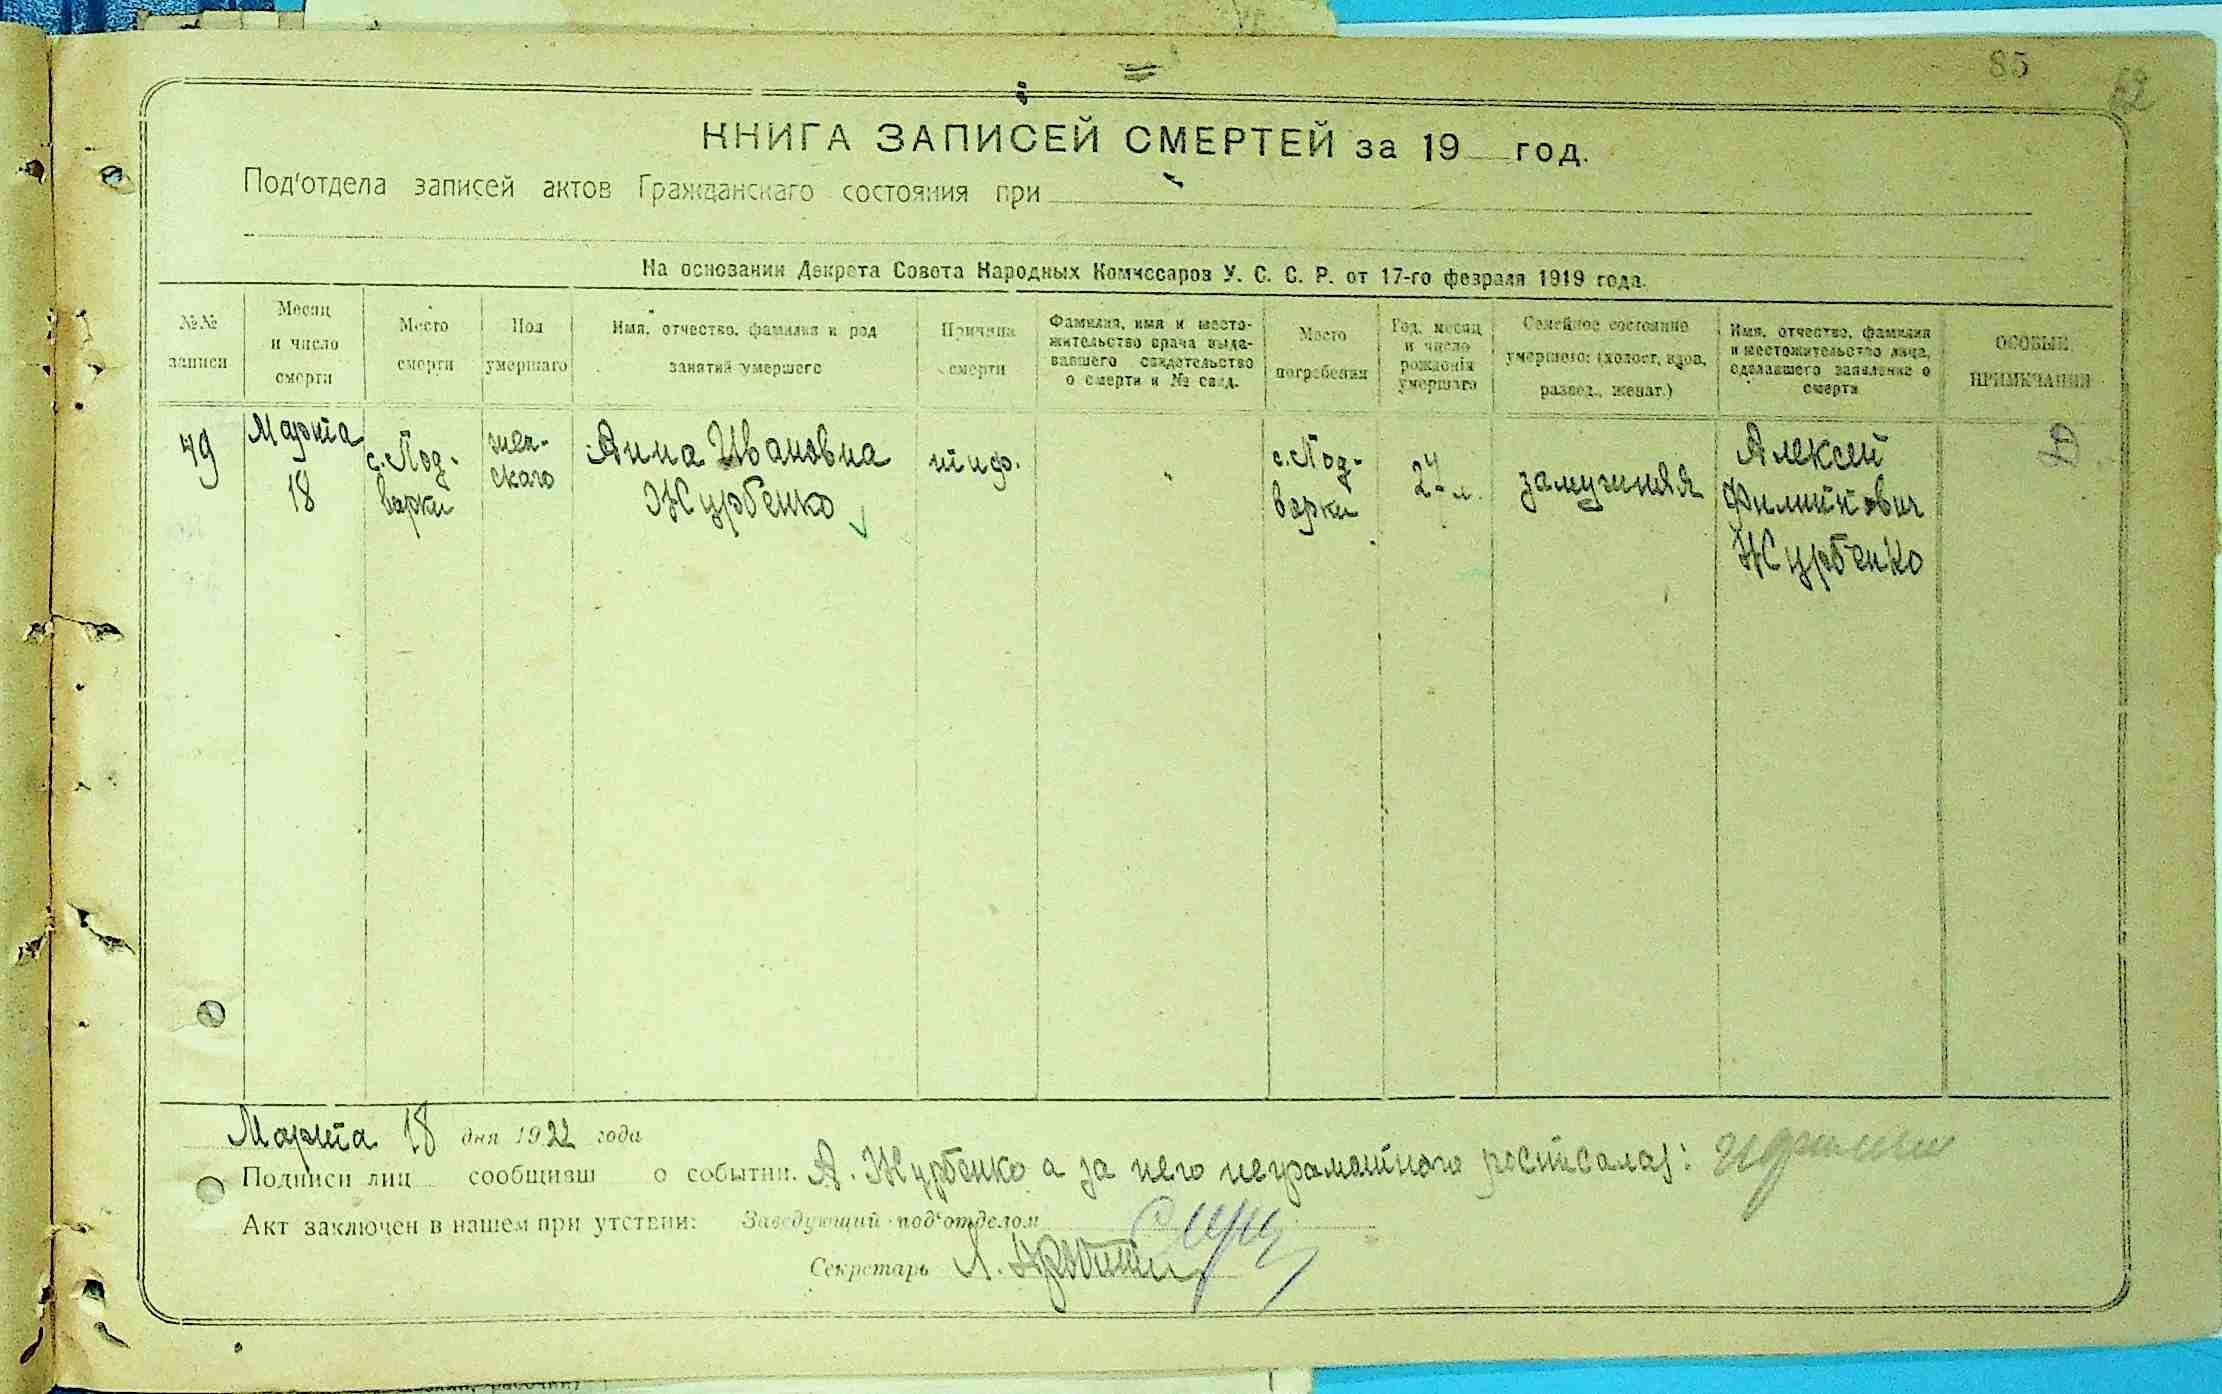 85
62
КНИГА ЗАПИСЕЙ СМЕРТЕЙ за 19 год.
Под'отдела записей актов Гражданскаго состояния при
На основании Декрета Совета Народных Комиссаров У. С. С. Р. от 17-го февраля 1919 года.
№№ записи
Месяц и число смерти
Место смерти
Пол умершаго
Имя, отчество, фамилия и род занятий умершего
Причина смерти
Фамилия, имя и место-
жительство врача выда-
вавшего свидетельство
о смерти и № свид.
Место погребения
Год, месяц
и число
рождения
умершаго
Семейное состояние
умершего: (холост, вдов,
развед., женат.)
Имя, отчество, фамилия
и местожительство лица,
сделавшего заявление о
смерти
ОСОБЫЕ
ПРИМЕЧАНИЯ
49
Марта
18
с. Под-
варки
жен-
скаго
Анна Ивановна
Журбенко
тиф.
"
с. Под-
варки
24 л.
замужняя
Алексей
Филиппович
Журбенко
Марта 18 дня 1922 года
Подписи лиц сообщивш о событии. А. Журбенко а за него неграмотного росписалась:
Акт заключен в нашем присутствии: Заведующий под'отделом
Секретарь